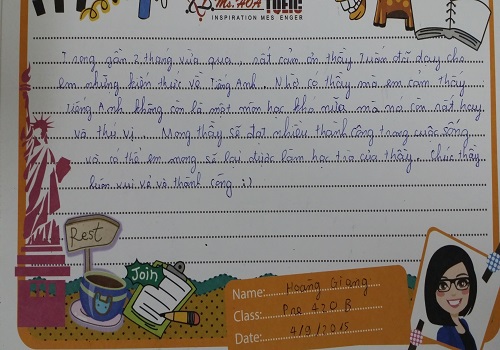 Ms.HOA TOEIC
INSPIRATION MESSENGER
Trong gần 2 tháng vừa qua, rất cảm ơn thầy Tuấn đã dạy cho
em những kiến thức về Tiếng Anh. Nhờ có thầy mà em cảm thấy
Tiếng Anh không còn là một môn học khó nữa mà nó còn rất hay
và thú vị. Mong thầy sẽ đạt nhiều thành công trong cuộc sống
và có thể em mong sẽ lại được làm học trò của thầy. Chúc thầy
luôn vui vẻ và thành công :)
Rest
Join
Name: Hoàng Giang
Class: Pre A20B
Date: 4/9/2015